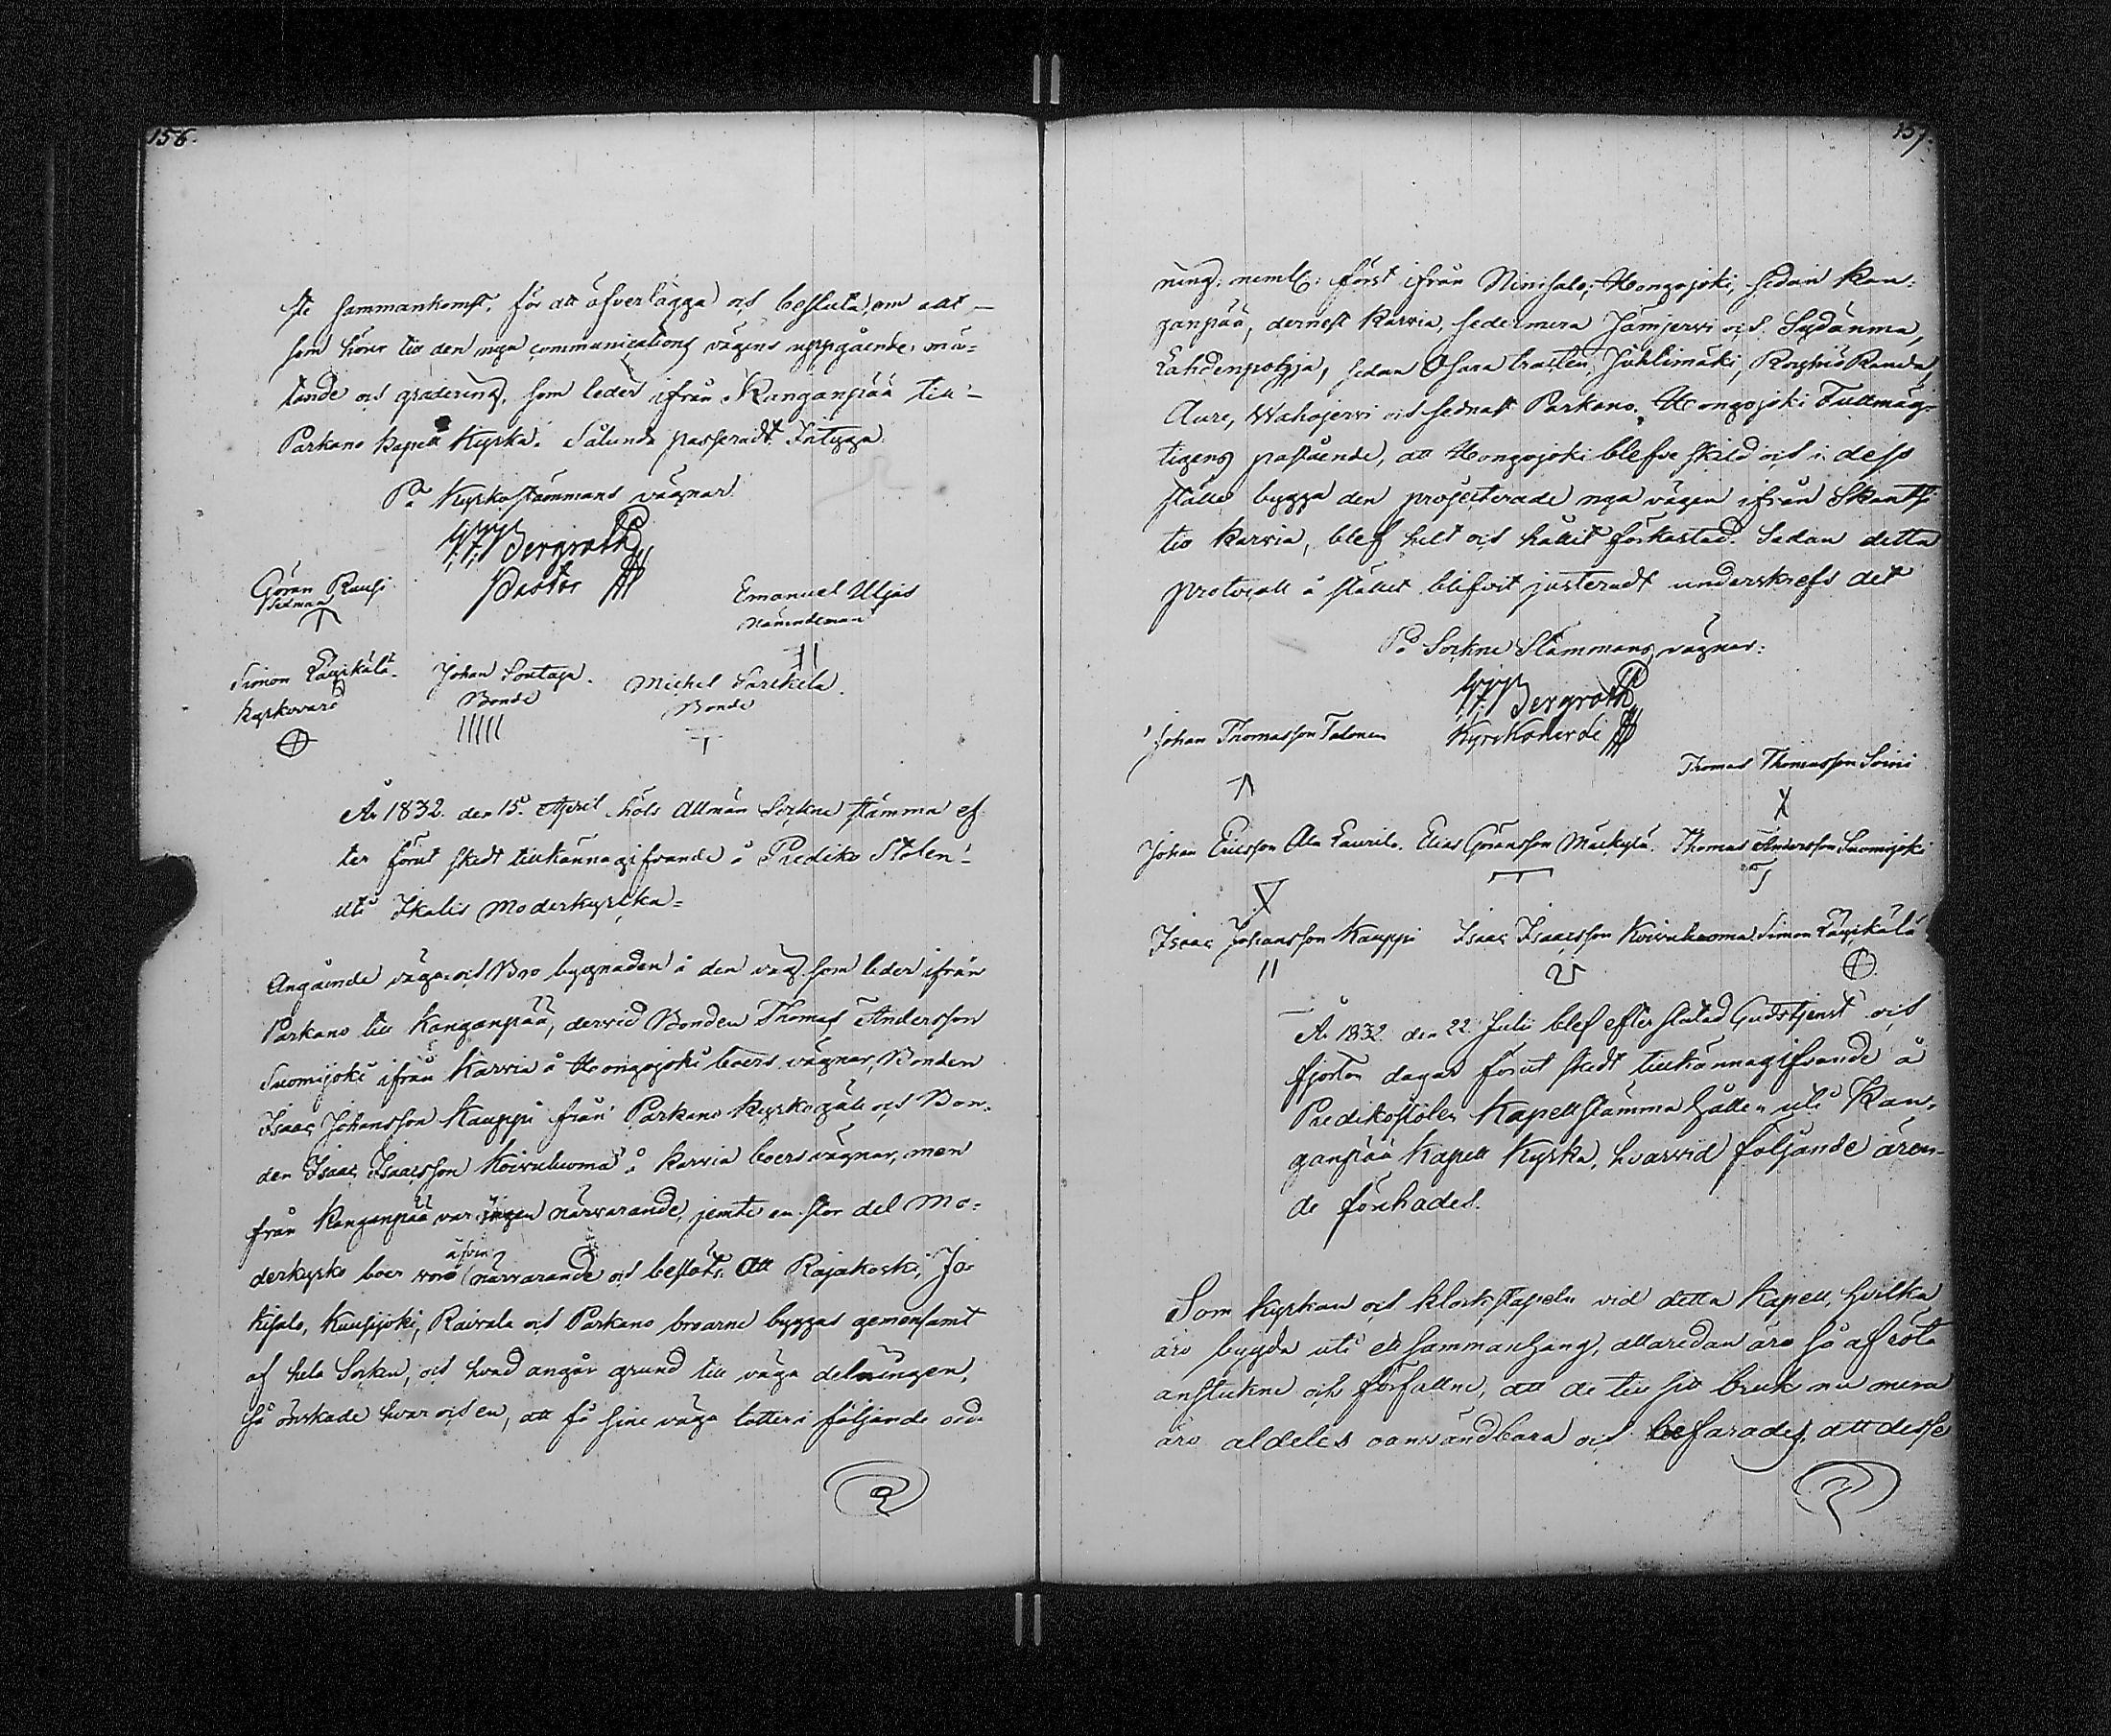 156.
ste sammankomst, för att öfverlägga och besluta om allt
som hörer till den nya communications vägens uppgående, mä-
tande och gradering, som leder ifrån Kanganpää till
Parkano Kapell Kyrka. Sålunda passeradt Intyga
På Kyrkostämmans vägnar
Bergroth
Pastor
Göran Rausi
Sexman
Emanuel Uljas
Nämndeman
Simon Läykälä
Kyrkovärd
Johan Sontaga
Bonde
Michel Särkelä
Bonde
År 1832. den 15. April höls Allmän Sockne stämma ef-
ter förut skedt tillkännagifvande å Prediko Stolen
uti Ikalis Moderkyrka
Angående väga och Bro byggnaden å den väg som leder ifrån
Parkano till Kanganpää, dervid Bonden Thomas Andersson
Suomijoki ifrån Karvia å Hongojoki boers vägnar, Bonden
Isaac Johansson Kauppi från Parkano Kyrkogäll och Bon-
den Isaac Isaacsson Koivuluoma å Karvia boers vägnar, men
från Kanganpää var ingen närvarande, jemte en stor del Mo-
derkyrko boer voro äfven närvarande och beslöts: att Rajakoski, Ja-
kisalo, Kuusijoki, Raivala och Parkano broarne byggas gemensamt
af hela Sockn, och hvad angår grund till väga delningen,
så önskade hvar och en, att få sine väga lotter i följande ord-
157.
ning, neml: först ifrån Niinisalo, Hongojoki, sedan Kan-
ganpää, dernest Karvia, sedermera Jämijervi och Sydänma,
Lahdenpohja, sedan Osara trakten, Juhtimäki, Röyhiö Randa,
Aure, Wahojervi och sednast Parkano. Hongojoki Fullmäg-
tigens påstående, att Hongojoki blefve skild och i dess
ställe bygga den projecterade nya vägen ifrån Skantsi
till Karvia, blef helt och hållit förkastad. Sedan detta
protocoll å stället blifvit justeradt underskrefs det
På Sockne Stämmans vägnar:
Bergroth
Kyrkoherde
Johan Thomasson Talonen
Thomas Thomasson Soini
Johan Ericsson Ala Laurila. Elias Göransson Mäckylä. Thomas Andersson Suomijoki
Isaac Johansson Kauppi Isaac Isaacsson Koivuluoma Simon Läykälä
År 1832. den 22 Julii blef efter slutad Gudstjenst och
fjorton dagar förut skedt tillkännagifvande å
Predikostolen Kapellstämma hållen uti Kan-
ganpää Kapell Kyrka, hvarvid följande ären-
de förehades.
Som Kyrkan och klockstapeln vid detta Kapell, hvilka
äro bygda uti ett sammanhang, allaredan äro så af röta
anstuckne och förfallne, att de till sitt bruk nu mera
äro aldeles oanvändbara och befarades, att desse